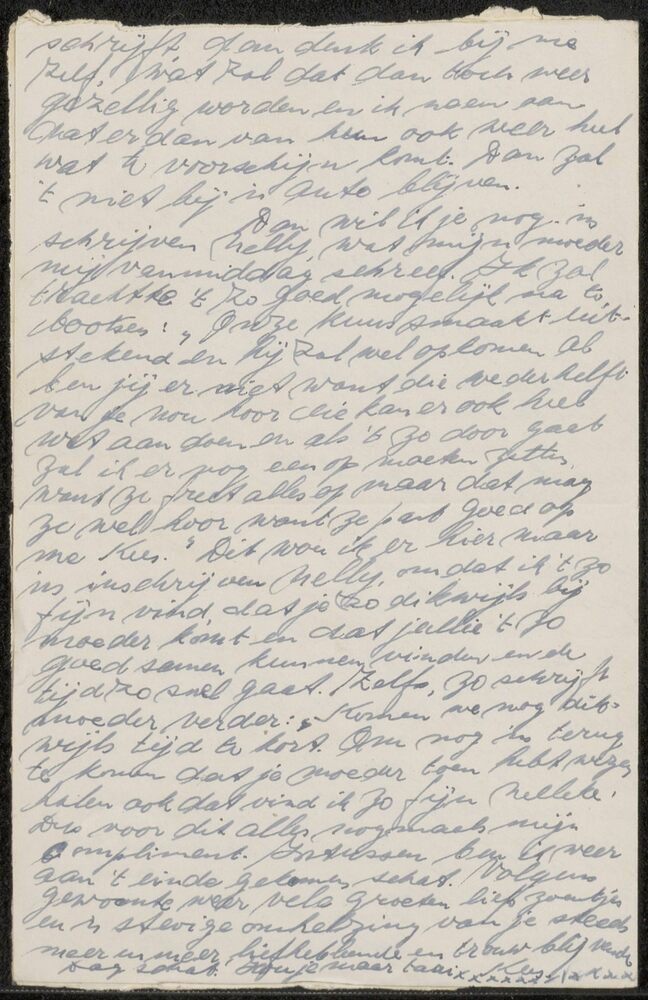 schrijft, dan denk ik bij me
zelf, wat zal dat dan toch weer
gezellig worden en ik neem aan
dat er dan van hun ook weer heel
wat te voorschijn komt. Dan zal
't niet bij in auto blijven.
Dan wil ik je nog in
schrijven Nelly, wat mijn moeder
mij vanmiddag schreef. Ik zal
trachtte 't zo goed mogelijk na te
bootsen: „Onze kuus smaakt uit-
stekend en hij zal wel opkomen al
ben jij er niet want die wederhelft
van je nou hoor die kan er ook heel
wat aan doen en als 't zo door gaat
zal ik er nog een op moeten zetten,
want ze freet alles op maar dat mag
ze wel hoor want ze past goed op
me Kees." Dit wou ik er hier maar
ins inschrijven Nelly, omdat ik 't zo
fijn vind, dat je zo dikwijls bij
moeder komt en dat jullie 't zo
goed samen kunnen vinden en de
tijd zo snel gaat. Zelfs, zo schrijft
moeder verder: „Komen we nog dik-
wijls tijd te kort. Om nog in terug
te komen dat je moeder toen hebt wezen
halen ook dat vind ik zo fijn Nelleke.
Dus voor dit alles nogmaals mijn
compliment. Intussen ben ik weer
aan 't einde gekomen schat. Volgens
gewoonte weer vele groeten lief zoentjes
en 'n stevige omhelzing van je steeds
meer en meer liefhebbende en trouw blijvende
Dag schat. Hou je maar taai xxxxxx Kees xxxxx